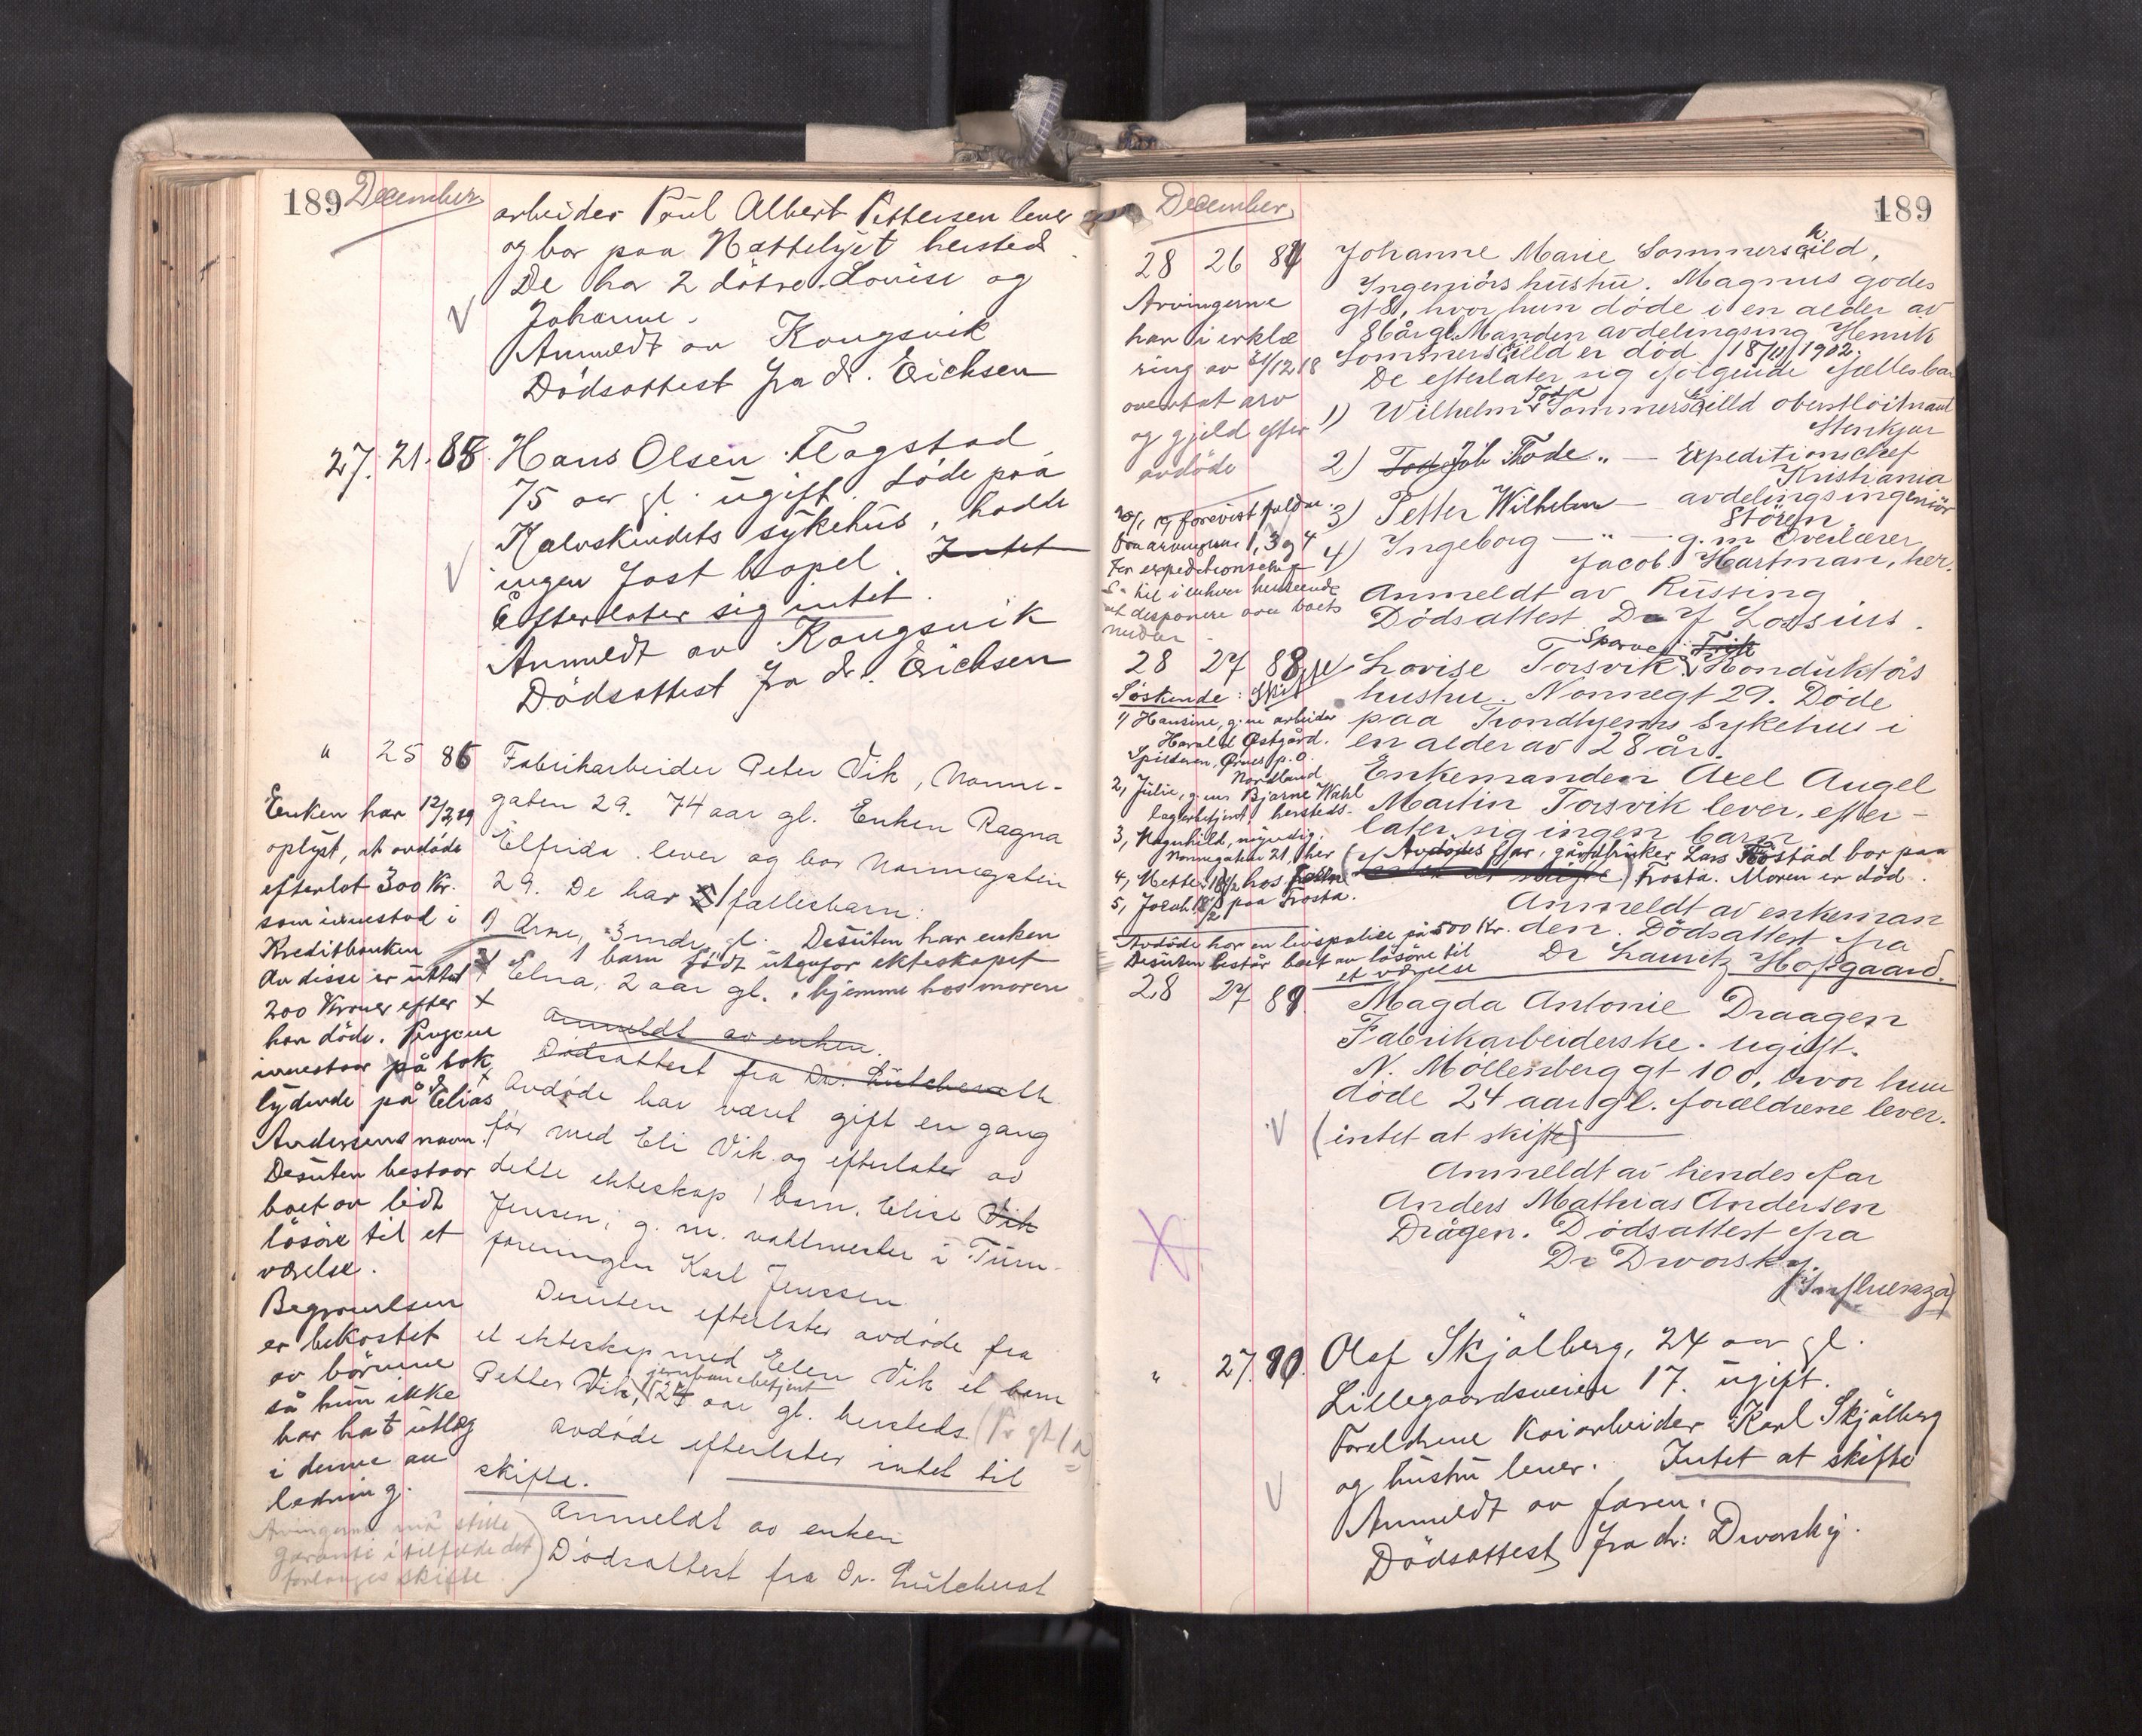 189 December
arbeider Poul Albert Pettersen lever
og bor paa Hattelyst hersted
De har 2 døtre Lovise og
Johanne.
Anmeldt av Kongsvik
Dödsattest fra dr. Erichsen
27. 21. 88. Hans Olsen Flagstad
75 aar gl. ugift. døde paa
Kalvskindets sykehus, hadde
ingen fast bopel. Intet
Efterlater sig intet.
Anmeldt av Kongsvik
Dödsattest fra dr. Erichsen
" 25 86 Fabrikarbeider Peter Vik, Nonne-
gaten 29. 74 aar gl. Enken Ragna
Elfrida lever og bor Nonnegaten
29. De har 1 fællesbarn:
1) Arne, 3 mdr. gl. Desuten har enken
1 barn født utenfor ekteskapet
Elna, 2 aar gl. hjemme hos moren
Anmeldt av enken.
Dødsattest fra Dr.
Avdøde har været gift en gang
før med Eli Vik og efterlater av
dette ekteskap 1 barn, Elise Vik
Jensen, g. m. vaktmester i Turn-
foreningen Karl Jenssen
Desuten efterlater avdøde fra
et ekteskap med Elen Vik et barn
jernbanebetjent
Petter Vik, 24 aar gl. hersteds.
Avdøde efterlater intet til
skifte.
Anmeldt av enken
Dødsattest fra Dr.
Enken har 12/2 19
oplyst, at avdøde
efterlot 300 Kr.
som innestod i
Kreditbanken
Av disse er uttat
200 Kroner efter
han døde. Pengene
innestaar på bok
lydende på Elias
Andersens navn.
Desuten bestaar
boet av lidt
løsøre til et
værelse.
Begravelsen
er bekostet
av børnene
så hun ikke
har hat utlæg
i denne an
ledning.
Arvingerne må stille
garanti i tilfælde det
forlanges skifte
December 189
28 26 84 Johanne Marie Sommerschild,
Ingeniørs hustru. Magnus godes
gt 8, hvor hun døde i en alder av
86 år gl. Manden avdelingsing. Henrik
Sommerschield er død 18/11 1902.
De efterlater sig følgende fællesbar
1) Wilhelm Tode Sommerschilld oberstløitnant
Stenkjær
2) Tode Joh Thode " — Expeditionschef
Kristiania
3) Petter Wilhelm — avdelingsingeniör
Stören.
4) Ingeborg — " — g. m Overlærer
Jacob Hartman, her.
Anmeldt av Russing
Dødsattest Dr J Lossius.
Arvingerne
har i erklæ
ring av 31/12 18
overtat arv
og gjeld efter
avdøde
forevist fuldm.
fra arvingerne 1, 3 og 4
for expeditionschef
S. til i enhver henseende
at disponere over boets
midler
28 27 88 Lovise Torsvik, Sporvei Konduktørs
hustru. Nonnegt 29. Døde
paa Trondhjems Sykehus i
en alder av 28 år.
Enkemanden Axel Angel
Martin Torsvik lever. efter-
later sig ingen barn
Avdødes far, gårdbruker Lars bor paa
Frosta. Moren er død.
Anmeldt av enkeman
den. Dödsattest fra
Dr Lauritz Hofgaard.
Søskende: Skif
1) Hansine, g. m. arbeider
Harald Østgård.
Spilderen, Ørnes p.o.
Nordland
2, Julie, g. m. Bjarne Wahl
lagerbetjent, hersteds.
3, Ragnhild, myndig.
Nonnegaten 21, her
4, Mette hos
5, Jacob paa Frosta.
Avdøde har en livspolice på 500 Kr.
Desuten består boet av løsøre til
et værelse
28 27 88 Magda Antonie Draagen
Fabrikarbeiderske. ugift.
N. Möllenberg gt 100, hvor hun
døde 24 aar gl. forældrene lever.
(intet at skifte)
Anmeldt av hendes far
Anders Mathias Andersen
Drågen. Dødsattest fra
Dr Dworsky.
(Influenza)
" 27. 80. Olaf Skjölberg, 24 aar gl.
Lillegaardsveien 17. ugift.
Foreldrene Kaiarbeider Karl Skjölberg
og hustru lever. Intet at skifte
Anmeldt av faren.
Dödsattest fra dr: Dworsky.